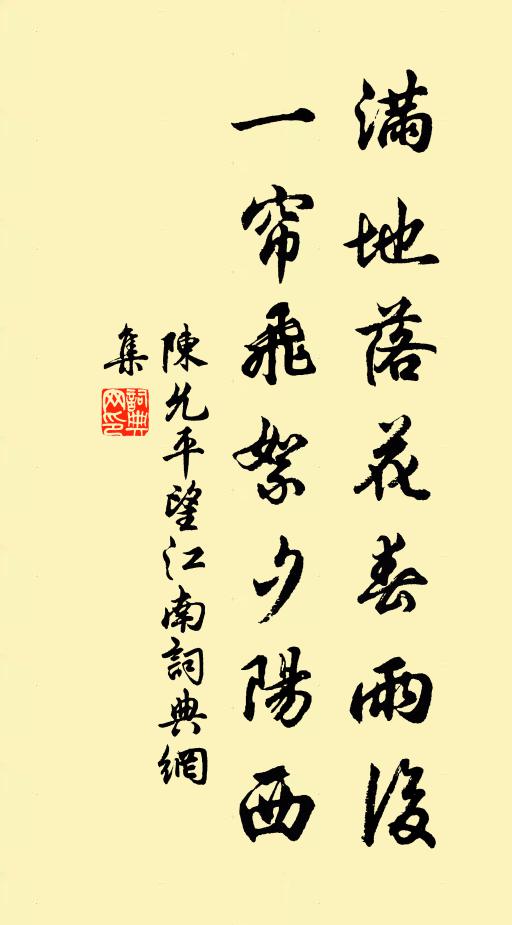 滿地落花春雨後
一帘飛絮夕陽西
陳允平望江南詞典網
集
詞典
网印